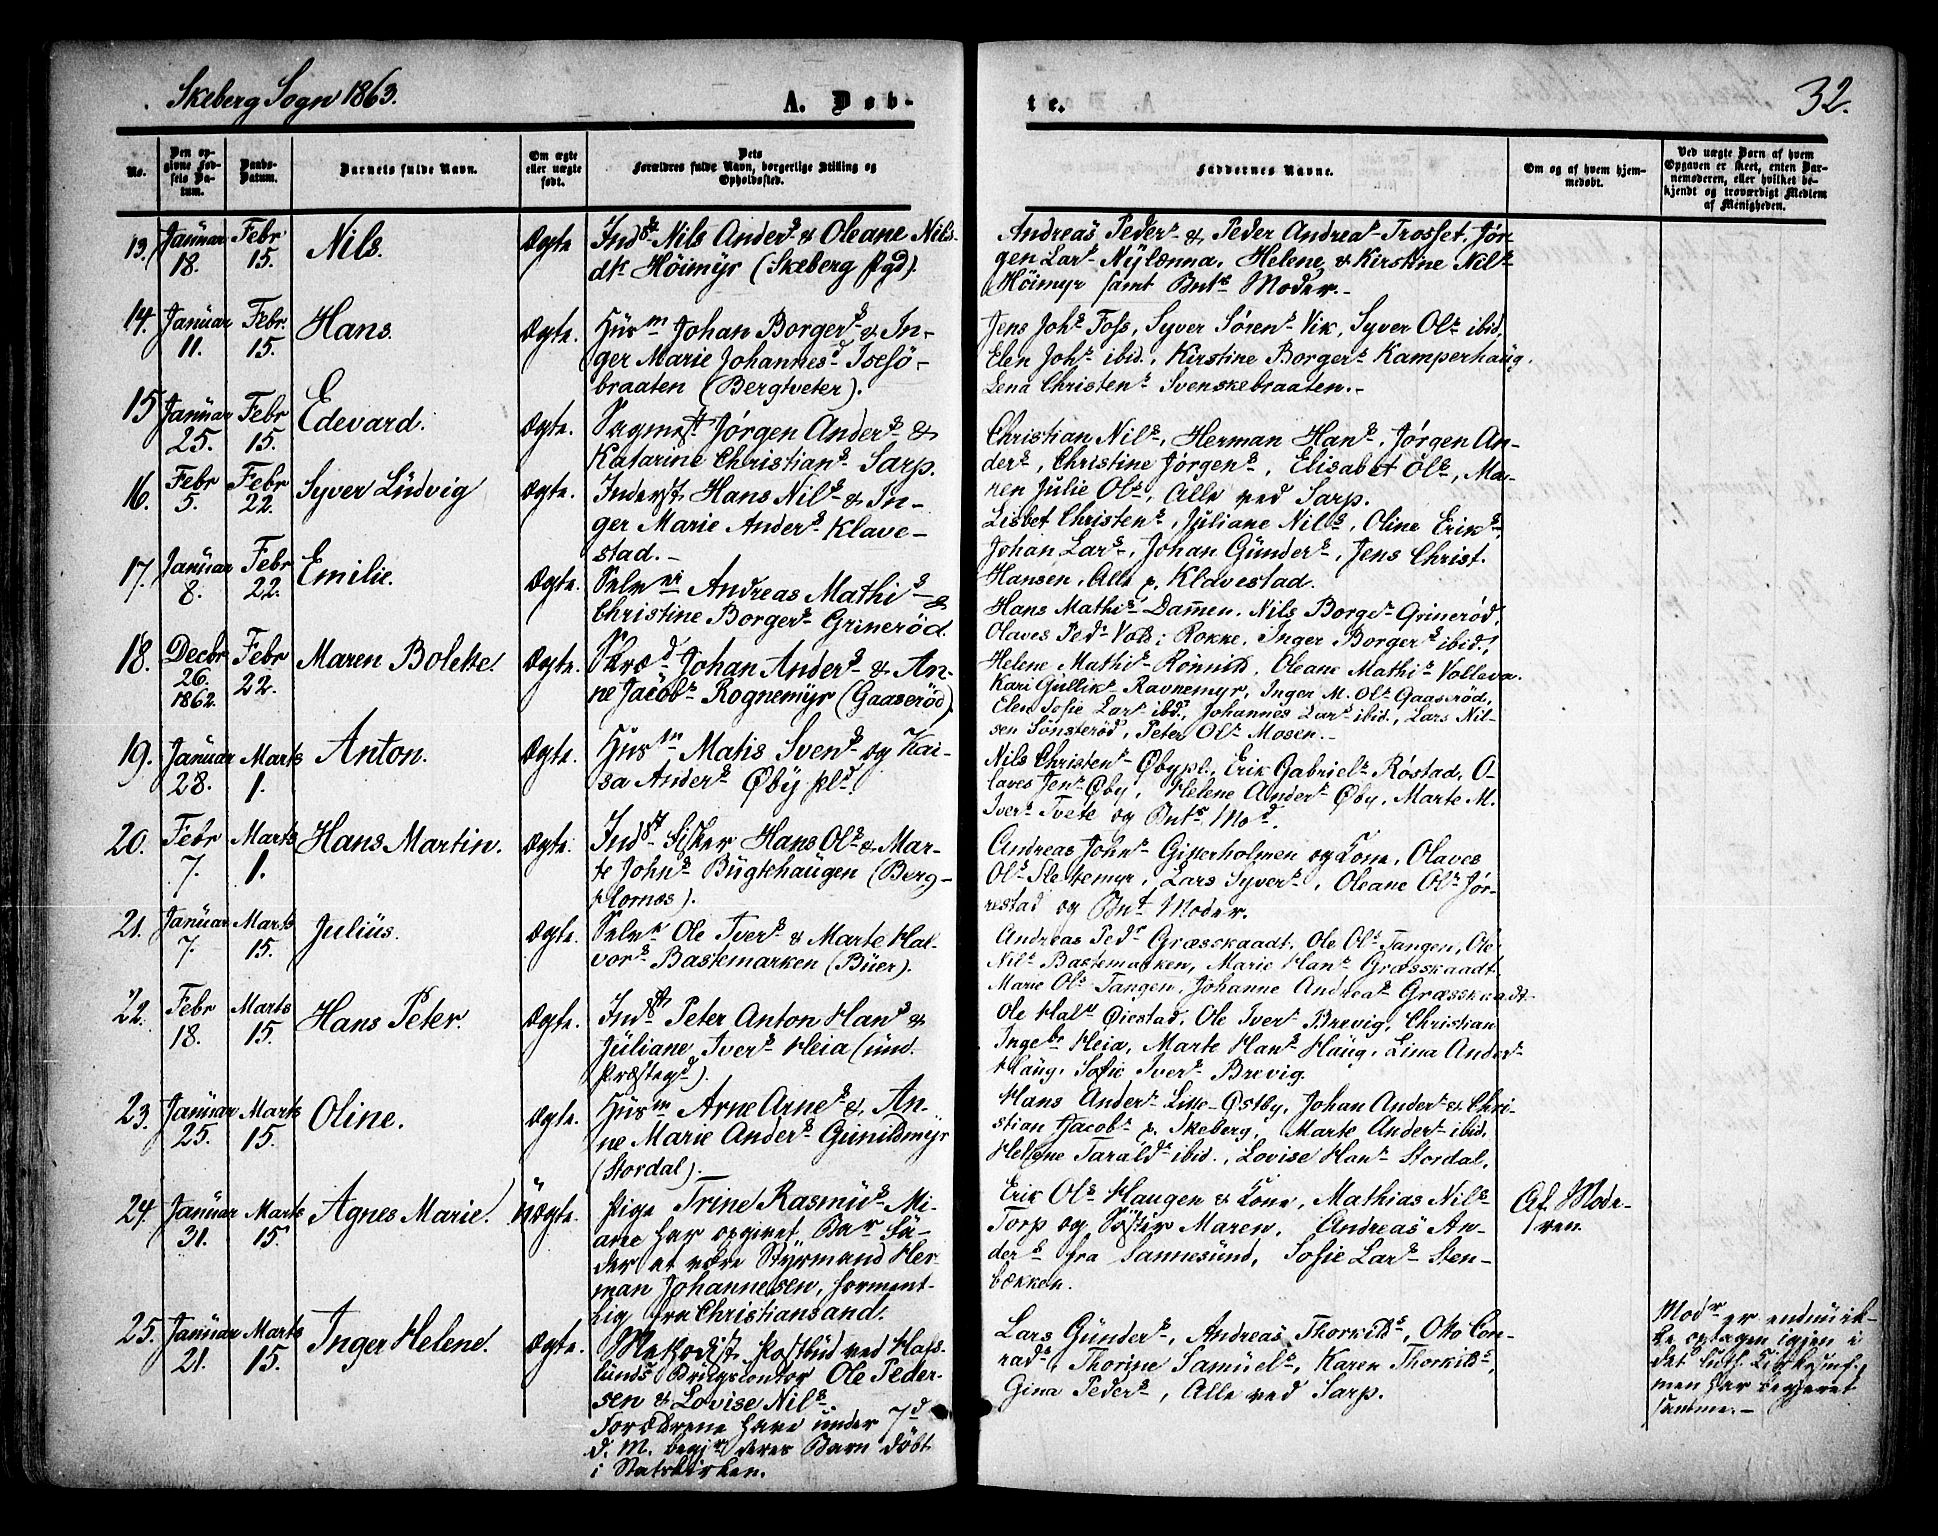 Skeberg Sogn 1863.
A. Døb-
te.
32.
No.
Den op-
givne Fød-
sels Da-
tum.
Daabs-
Datum.
Barnets fulde Navn.
Om ægte
eller uægte
født.
Dets
Forældres fulde Navn, borgerlige Stilling og
Opholdssted.
Faddernes Navne.
Om og af hvem hjem-
medøbt.
Ved uægte Børn af hvem
Opgaven er skeet, enten Bar-
nemoderen, eller hvilket be-
kjendt og troværdigt Medlem
af Menigheden.
13. Januar 18. Febr 15. Nils. Ægte
Inds Nils Anders & Oleane Nils-
dt Höimyr (Skeberg Pgd).
Andreas Peders & Peder Andreas Trosset, Jør-
gen Lars Nylænna, Helene & Kirstine Nils
Höimyr samt Bnts Moder.-
14. Januar 11. Febr. 15. Hans. Ægte.
Husm Johan Borgers & In-
ger Marie Johannesd Isesö-
braaten (Bergtveter).
Jens Johs Foss, Syver Sörens Vik, Syver Ols ibid,
Elen Johs ibid., Kirstine Borgers Kamperhaug.
Lena Christens Svenskebraaten.-
15 Januar 25. Febr 15. Edevard. Ægte.
Sagmest Jörgen Anders &
Katarine Christians Sarp.
Christian Nils, Herman Hans, Jörgen An-
ders, Christine Jörgens, Elisabet Ols, Ma-
ren Julie Ols, Alle ved Sarp.
16. Febr 5. Febr 22. Syver Ludvig Ægte.
Inderst Hans Nils & In-
ger Marie Anders Klave-
stad.-
Lisbet Christens, Juliane Nils, Oline Eriks
Johan Lars, Johan Gunders, Jens Christ.
Hansen, Alle p. Klavestad.
17. Januar 8. Febr 22. Emilie. Ægte.
Andreas Mathis &
Christine Borgers Grineröd.
Hans Mathis Dammen, Nils Borgers Grineröd,
Olaves Peds Rokke, Inger Borgers ibid.,
Helene Mathis Oleane Mathis
18. Decbr 26. 1862. Febr 22. Maren Bolette. Ægte.
Skræd Johan Anders & An-
ne Jacobs Rognemyr (Gaaseröd)
Kari Gulliks Ravnemyr, Inger M. Ols Gaaseröd,
Elen Sofie Lars ibid., Johannes Lars ibid., Lars Nil-
sen Sönsteröd, Peter Ols Mosen.-
19. Januar 28. Marts 1. Anton. Ægte.
Husm Matis Svens og Kai-
sa Anders Øby pld.
Nils Christens Øbypl., Erik Gabriels Röstad, O-
laves Jens Øby, Helene Anders Øby, Marte M.
Ivers Tvete og Bnts Mod.
20. Febr 7. Marts 1. Hans Martin. Ægte.
Indst Fisker Hans Ols & Mar-
te Johns Bugtehaugen (Berg-
Hornæs).
Andreas Johns Gitterholmen og Kone, Olaves
Ols Slettemyr, Lars Syvers, Oleane Ols Jör-
restad og Bnts Moder.
21. Januar 7. Marts 15. Julius. Ægte.
Ole Ivers & Marte Hal-
vors Bastemarken (Buer).
Andreas Peds Græsskaadt, Ole Ols Tangen, Ole
Nils Bastemarken, Marie Hans Græsskaadt
Marie Ols Tangen, Johanne Andreas Græsskaadt
22. Febr 18. Marts 15. Hans Peter. Ægte.
Indst Peter Anton Hans &
Juliane Ivers Heia (und.
Præstegd).
Ole Halv Öiestad, Ole Ivers Brevig, Christian
Ingebr Heia, Marte Hans Haug, Lina Anders
Haug, Sofie Ivers Brevig.
23. Januar 25. Marts 15. Oline. Ægte.
Husm Arne Arnes & An-
ne Marie Anders Gunildmyr
(Stordal).-
Hans Anders Lille-Östby, Johan Anders & Chri-
stian Jacobs p. Skeberg, Marte Anders ibid,
Helene Taralds ibid., Lovise Hans Stordal,
24. Januar 31. Marts 15. Agnes Marie. Uægte.
Pige Trine Rasmus Mi-
arie har opgivet Bar Fa-
der at være Styrmand Her-
man Johannesen, forment-
lig fra Christiansand.
Erik Ols Haugen & Kone, Mathias Nils
Torp og Söster Maren, Andreas An-
ders fra Sannesund, Sofie Lars Sten-
bækken.
Af Mode-
ren.
25. Januar 21. Marts 15. Inger Helene. Ægte.
Metodist Postbud ved Hafs-
lunds Brugscontor Ole Peder-
sen & Lovise Nils.
Forældrene have under 7d
d. M. begj deres Barn döbt
i Statskirken.
Lars Gunders, Andreas Thorkilds, Otto Con-
rads, Thorine Samuels, Karen Thorkilds,
Gina Peders, Alle ved Sarp.
Modr er endnu ik-
ke optagen igjen i
det luth. Kirkesamf.
men har begjeret
samme.-